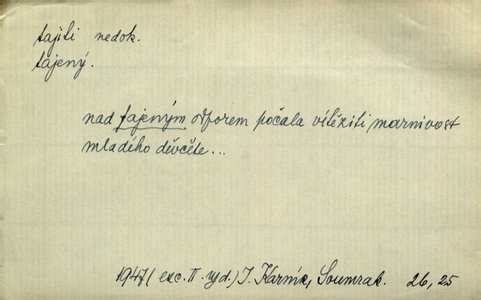 tajiti nedok.
tajený.
nad tajeným odporem počala vítěziti marnivost
mladého děvčete...
1947 (exc. II. vyd.) J. Karník, Soumrak. 26, 25